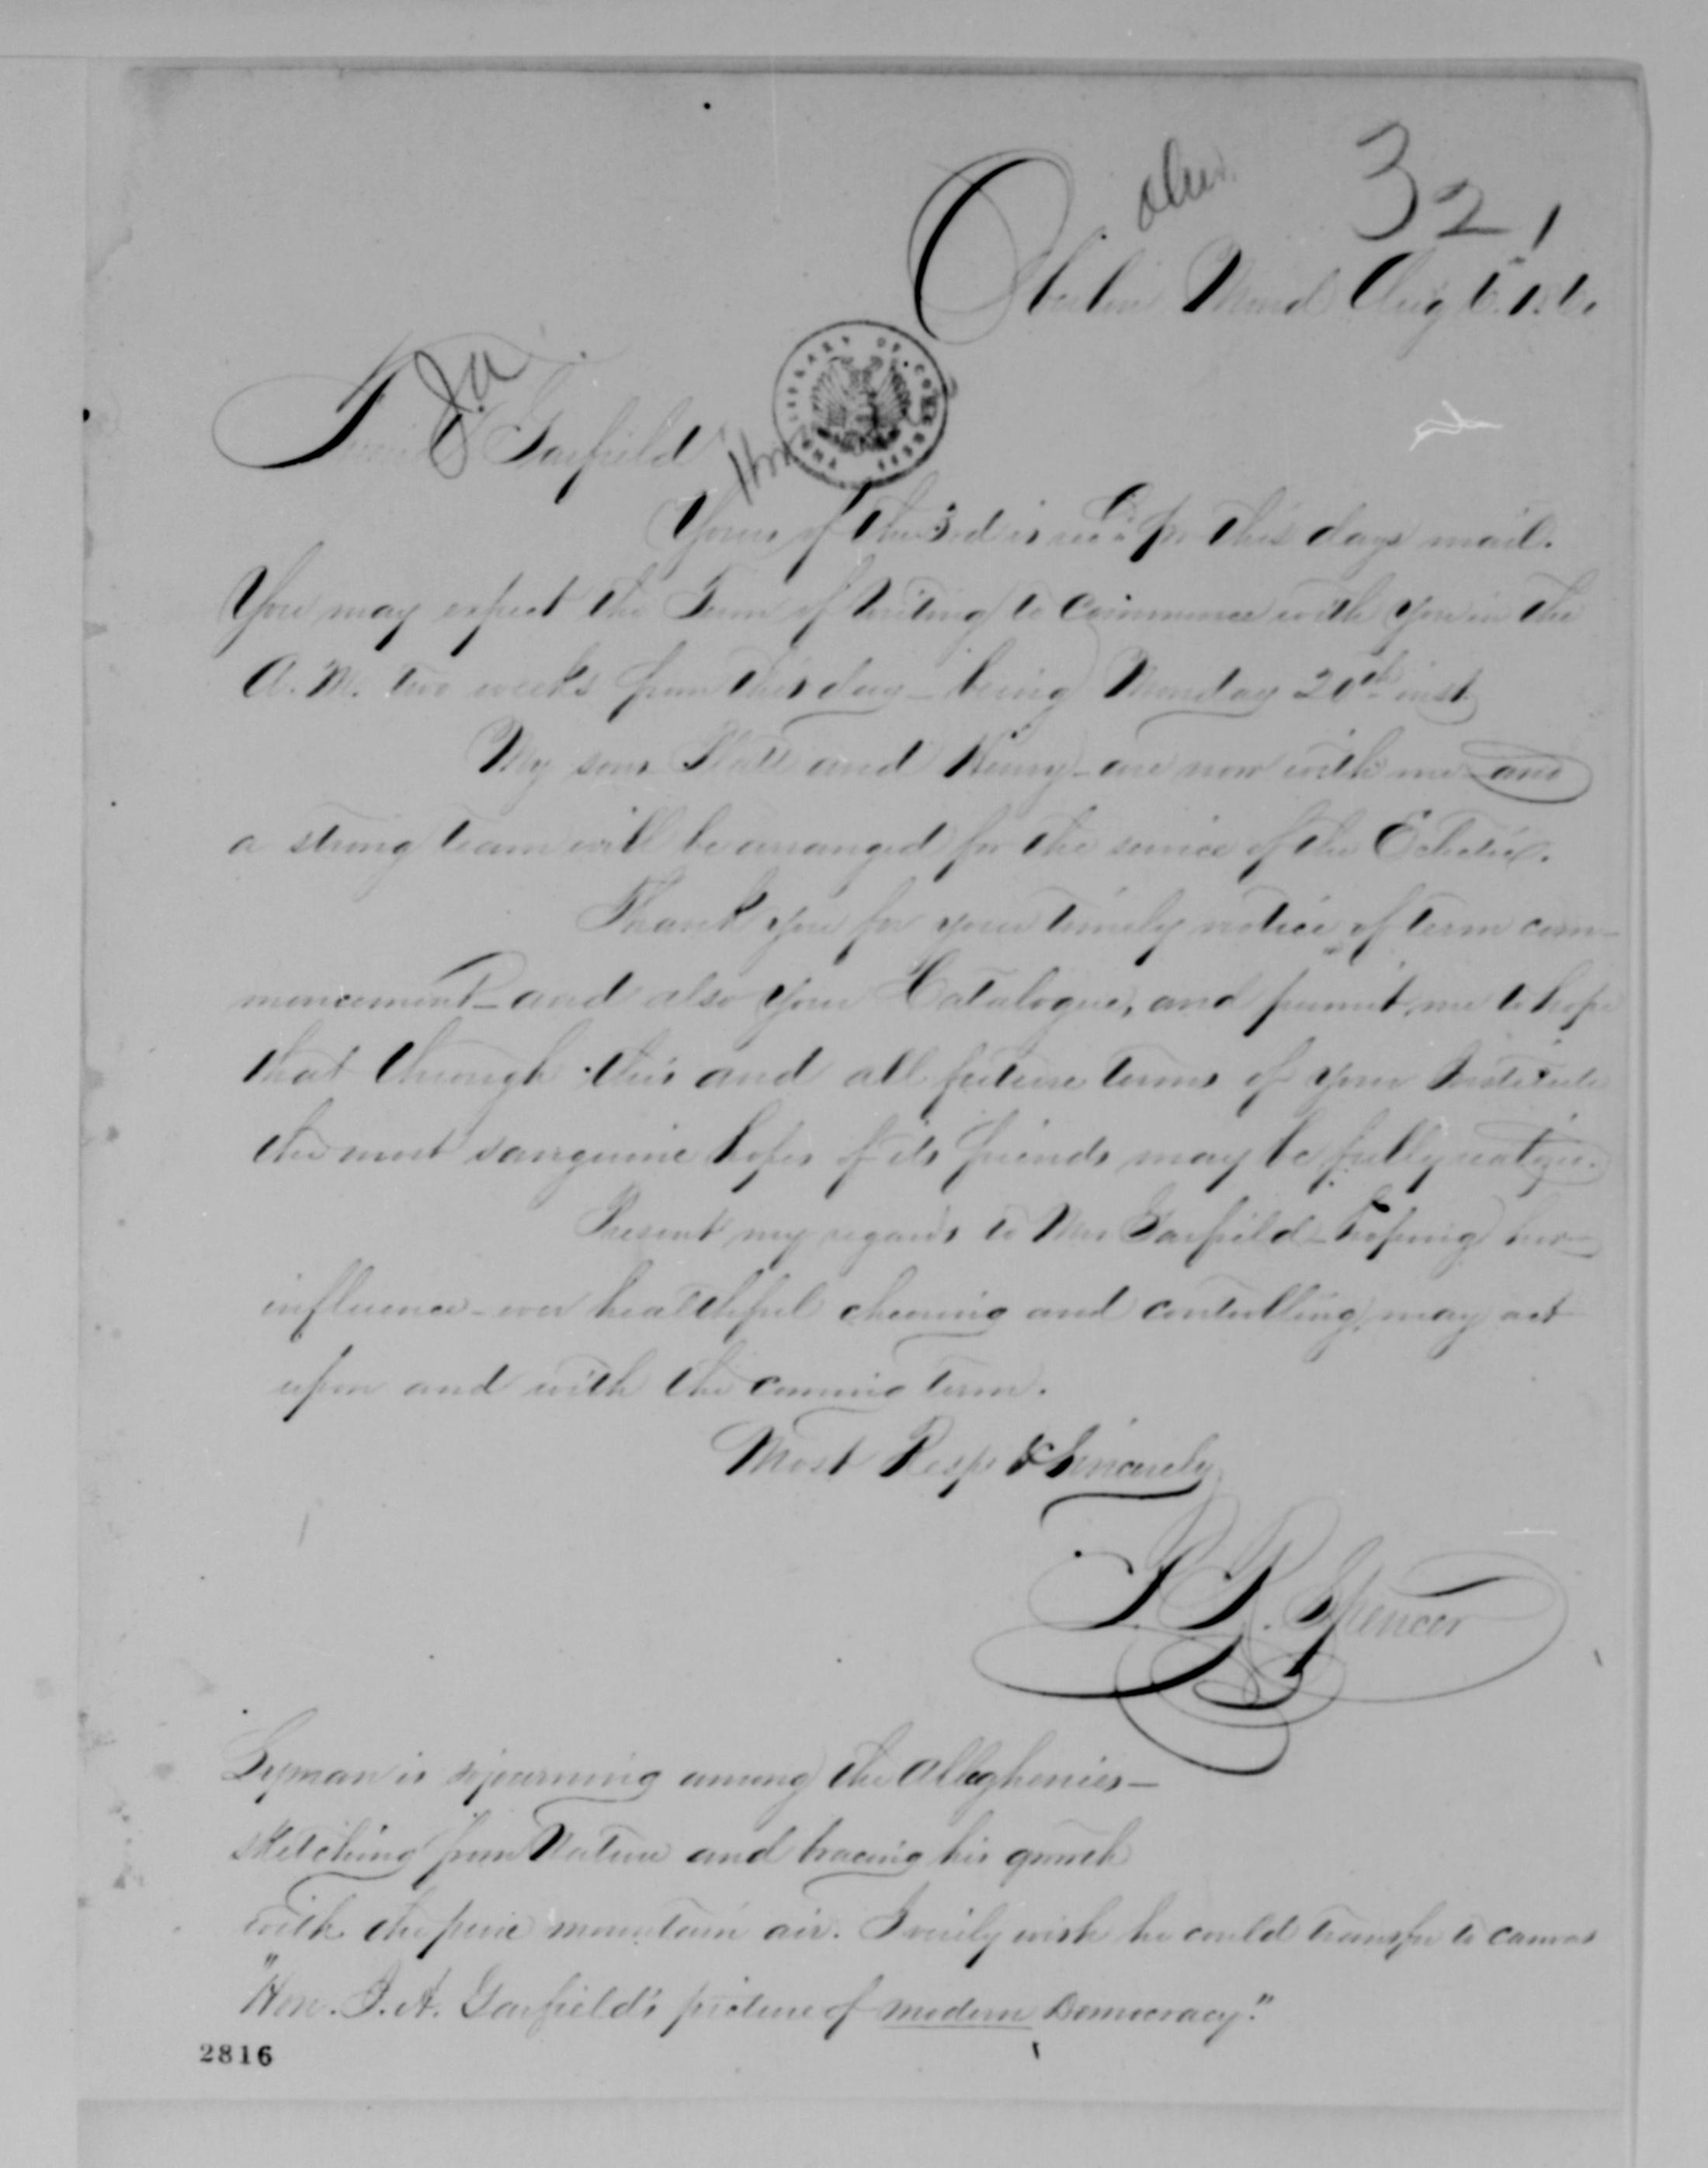 Ohio.
321
Oberlin Mond Aug 6.
J.A.
Friend Garfield
LIBRARY OF CONGRESS
Yours of the 3rd is recd. pr this days mail.
You may expect the Term of Writing to commence with you in the
A.M. two weeks from this day – being Monday 20th inst.
My sons Platt and Henry – are now with me – and
a strong team will be arranged for the service of the Eclectic.
Thank you for your timely notice of term com-
mencement – and also your Catalogue, and permit me to hope
that through this and all future terms of your Institute
the most sanguine hopes of its friends may be fully realized.
Present my regards to Mrs Garfield – hoping her
influence – ever healthful cheering and controlling, may act
upon and with the coming term.
Most Resp & Sincerely
P. R. Spencer
Lyman is sojourning among the Alleghenies –
sketching from Nature and bracing his growth
with the pure mountain air. I verily wish he could transfer to canvas
"Hon. J. A. Garfield's picture of modern Democracy."
2816